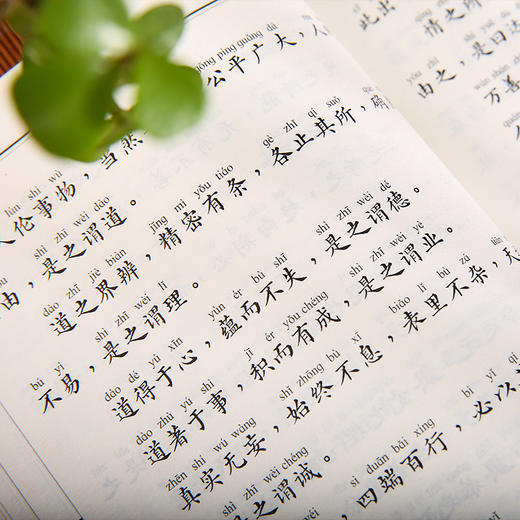 gōng píng guǎng dà
人伦事物，当然 公平广大，人
lún shì wù
shì zhī wèi dào
由，是之谓道。
dào zhī jiè biàn jīng mì yǒu tiáo gè zhǐ qí suǒ
道之界辨，精密有条，各止其所，
bú yì shì zhī wèi lǐ
不易，是之谓理。
dào dé yú xīn yùn ér bù shī shì zhī wèi dé
道得于心，蕴而不失，是之谓德。
dào zhù yú shì jī ér yǒu chéng shì zhī wèi yè
道著于事，积而有成，是之谓业。
zhēn shí wú wàng shǐ zhōng bù xī biǎo lǐ bù zá
真实无妄，始终不息，表里不杂，天
shì zhī wèi chéng
是之谓诚。
sì duān bǎi xíng bì yǐ
四端百行，必以
此出 情之所
yóu zhī
由之，是曰达
wàn shàn
万善